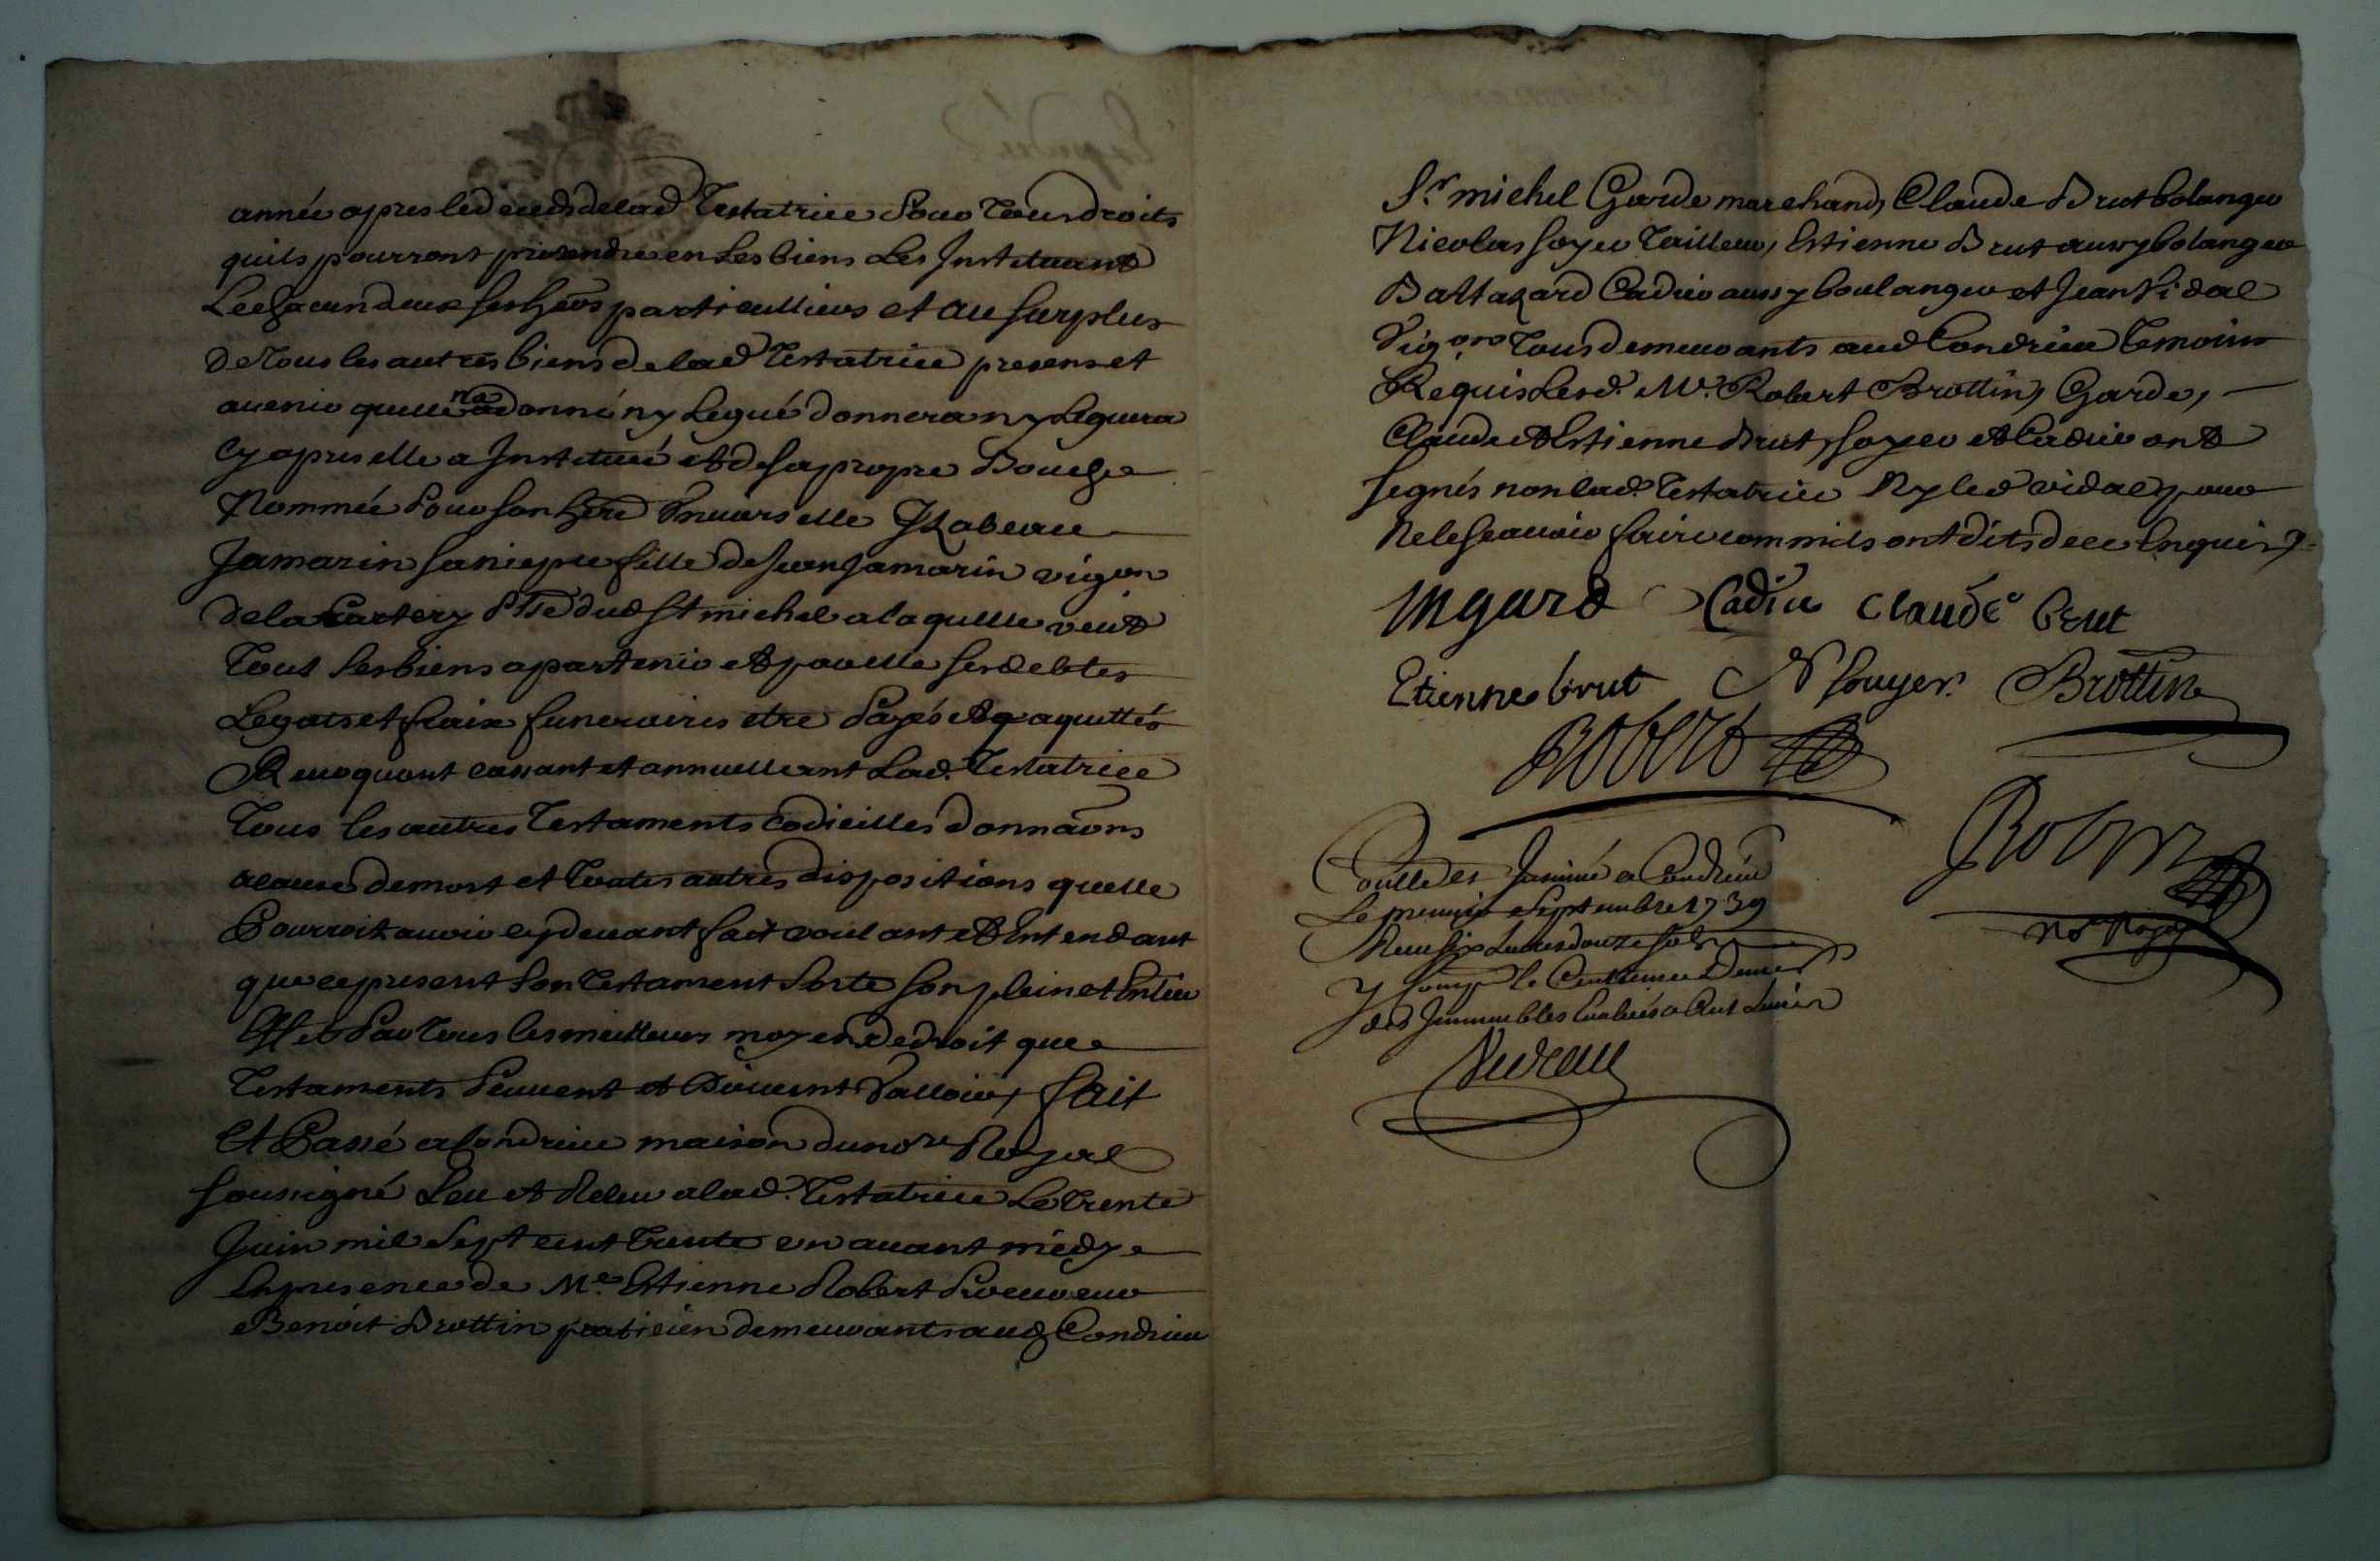 année apres led deceds delad Testatrice Pour Tous droits
quils pourront pretendre en ses biens Les Instituant
Lechacun deux ses hers particulliers et au surplus
De Tous les autres biens de lad Testatrice presens et
avenir quelle na donné ny Legué donnera ny Leguera
Cy apres elle a Institué et de sa propre Bouche
Nommée Pour son here Universelle Izabeau
Jamarin sa niepce fille de Jean Jamarin vigon
de la Partery Psse dud St michel a laquelle veut
Tous ses biens apartenir et par elle ses debtes
Legats et fraix funeraires etre Payés et aquittés
Revoquant cassant et annuellant Lad. Testatrice
Tous les autres Testaments Codicilles donnaons
a cause de mort et Toutes autres dispositions quelle
Pourroit avoir cy devant fait voulant et Entendant
que ce present son Testament Sorte son plein et Entier
Effet Par Tous les meilleurs moyens de droit que
Testaments Peuvent et Doivent Valloir, fait
Et Passé a Condrieu maison du nore Royal
soussigné Leu et Releu a lad. Testatrice Le Trente
Juin mil Sept cent Trente un avant midy
En presence de Me Estienne Robert Procureur
Benoit Brottin praticien demeurants aud Condrieu
Sr michel Garde marchand, Claude Brut bolanger
Nicolas soyer Tailleur, Estienne Brut aussy bolanger
Baltazard Cadier aussy boulanger et Jean Vidal
Vigon Tous demeurants aud Condrieu Temoins
Requis Lesd. Me. Robert Brottin, Garde,
Claude et Estienne Brut, soyer et Cadier ont
signés non lad. Testatrice Ny led vidal pour
Ne le scavoir faire comm ils ont dits de ce Enquis
Mgard Cadier Claude brut
Etienne brut N Souyer Brottin
Robert
Controllé et Insinué a Condrieu
Le premier Septembre 1739
Receu six Livres douze sols
Y Comp le Centieme Denier
des Immeubles Evalués a Cent Livres
no Royal